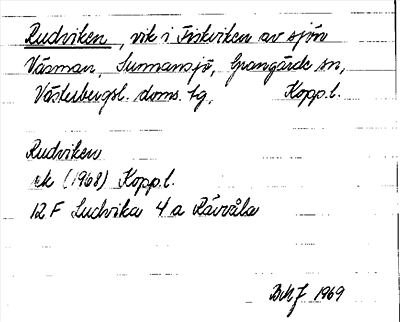 Rudviken, vik i Fiskviken av sjön
Väsman, Sunnansjö, Grangärde sn,
Västerbergsl. doms. tg, Kopp.l.
Rudviken
ek (1968) Kopp.l.
12 F Ludvika 4 a Rävvåla
1969